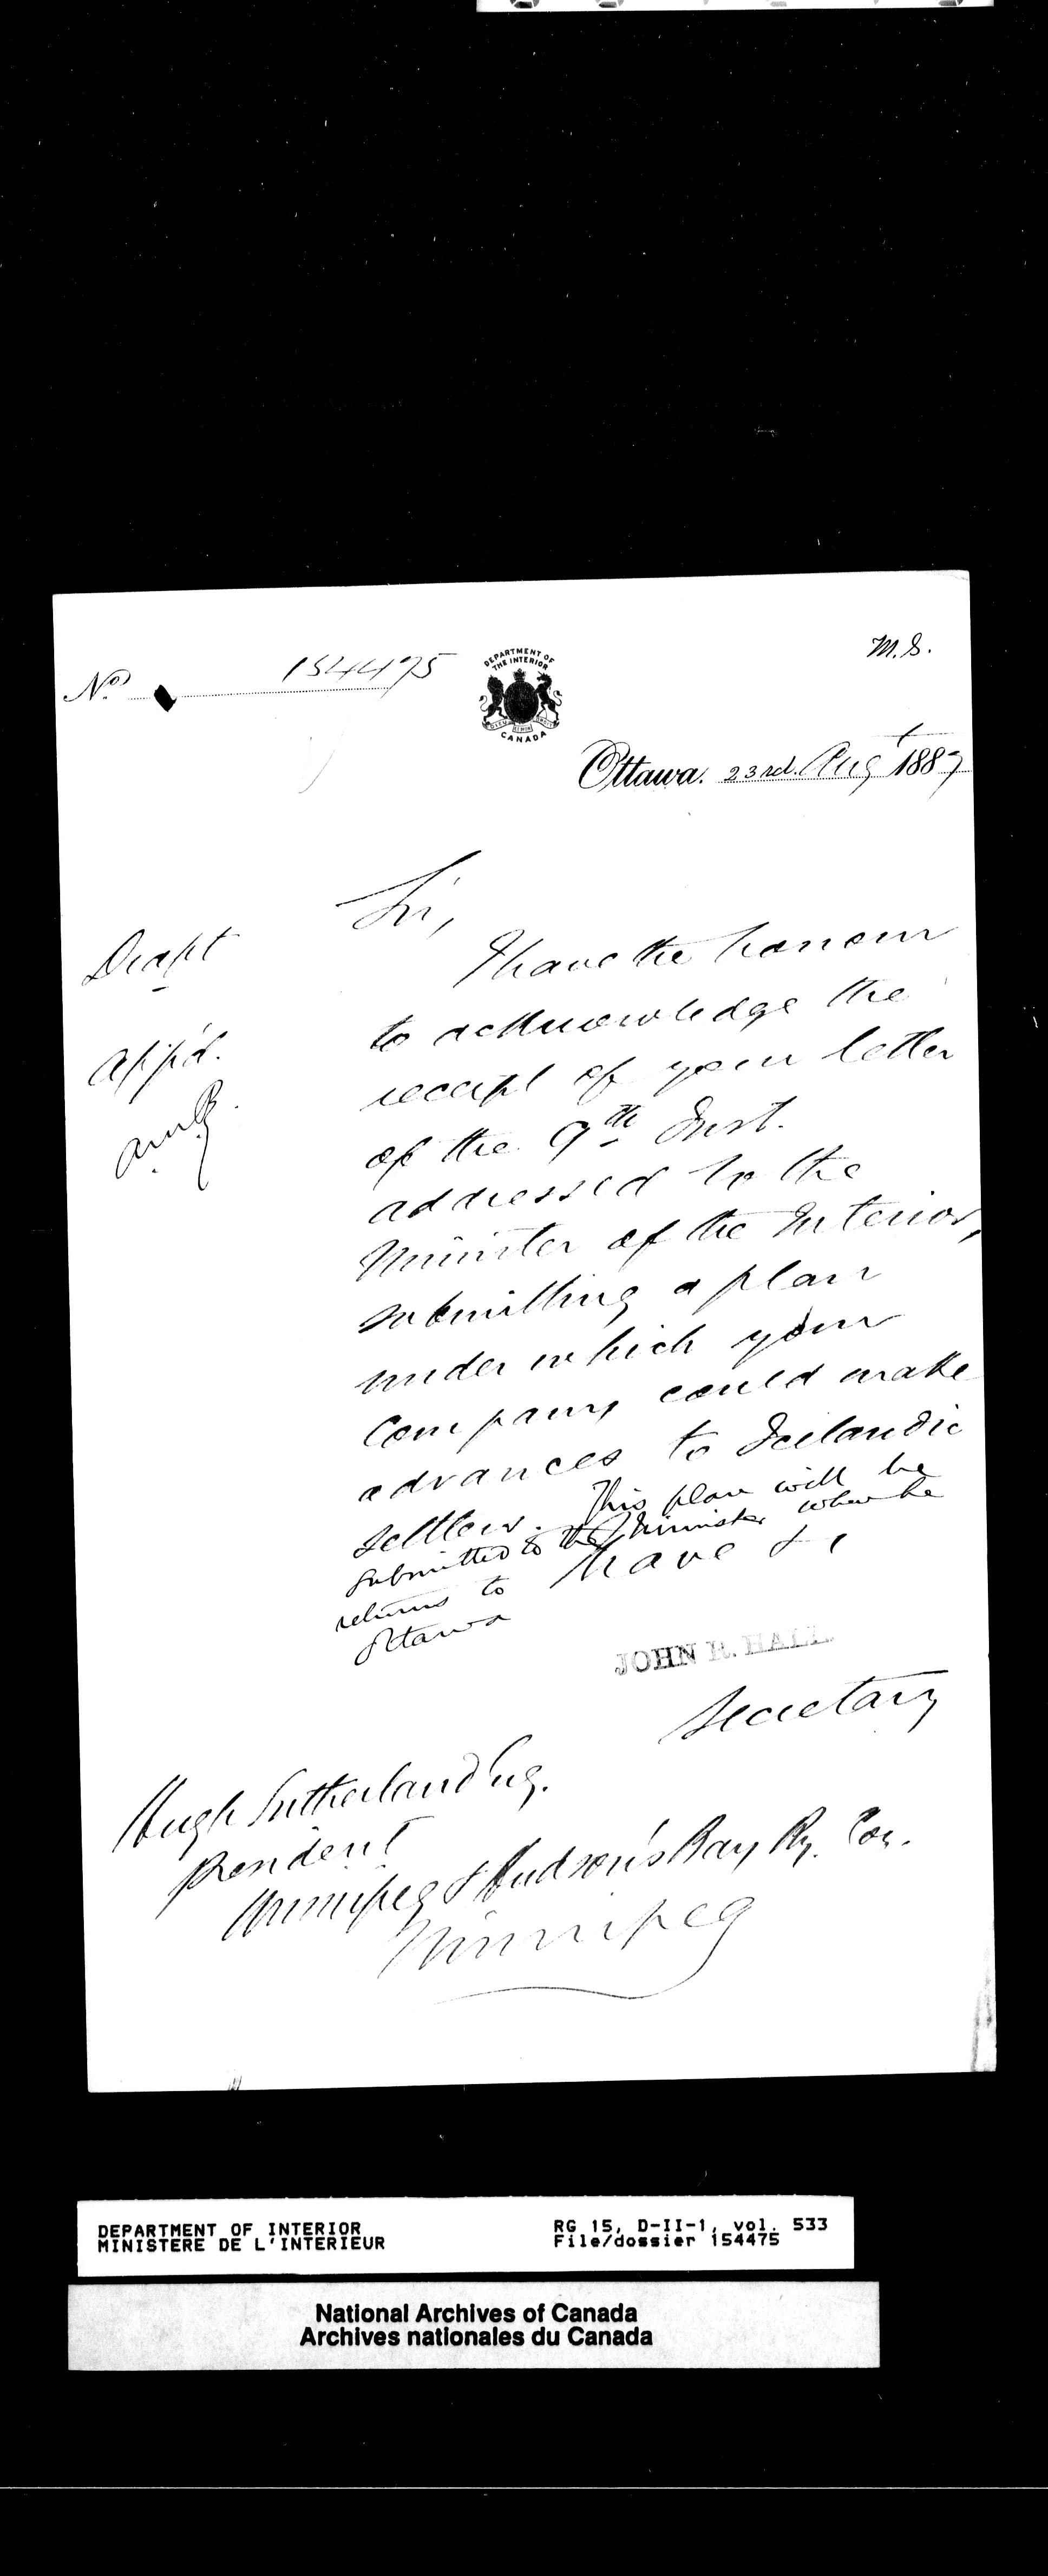 No. 154475
M.S.
DEPARTMENT OF
THE INTERIOR
CANADA
Ottawa. 23rd. Augt 1887
Sir,
Draft
I have the honour
to acknowledge the
App'd.
receipt of your letter
of the 9th Inst.
addressed to the
Minister of the Interior,
submitting a plan
under which your
Company could make
advances to Icelandic
settlers. This plan will be
submitted to the Minister when he
returns to
Ottawa
I have &c,
JOHN R. HALL
Secretary
Hugh Sutherland Esq.
President
Winnipeg & Hudson's Bay Ry. Coy.
Winnipeg
DEPARTMENT OF INTERIOR
MINISTERE DE L'INTERIEUR
RG 15, D-II-1, vol. 533
File/dossier 154475
National Archives of Canada
Archives nationales du Canada